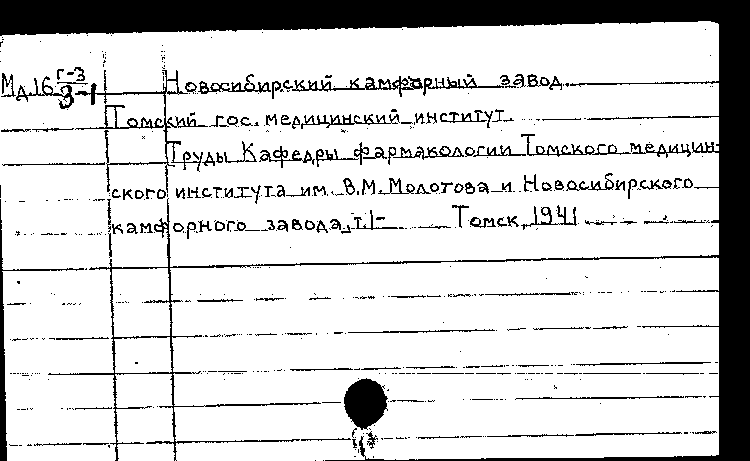 Мд.16 г-3/3-1 Новосибирский камфорный завод.
Томский гос. медицинский институт.
Труды Кафедры фармакологии Томского медицин-
ского института им. В.М. Молотова и Новосибирского
камфорного завода, т.1- Томск, 1941